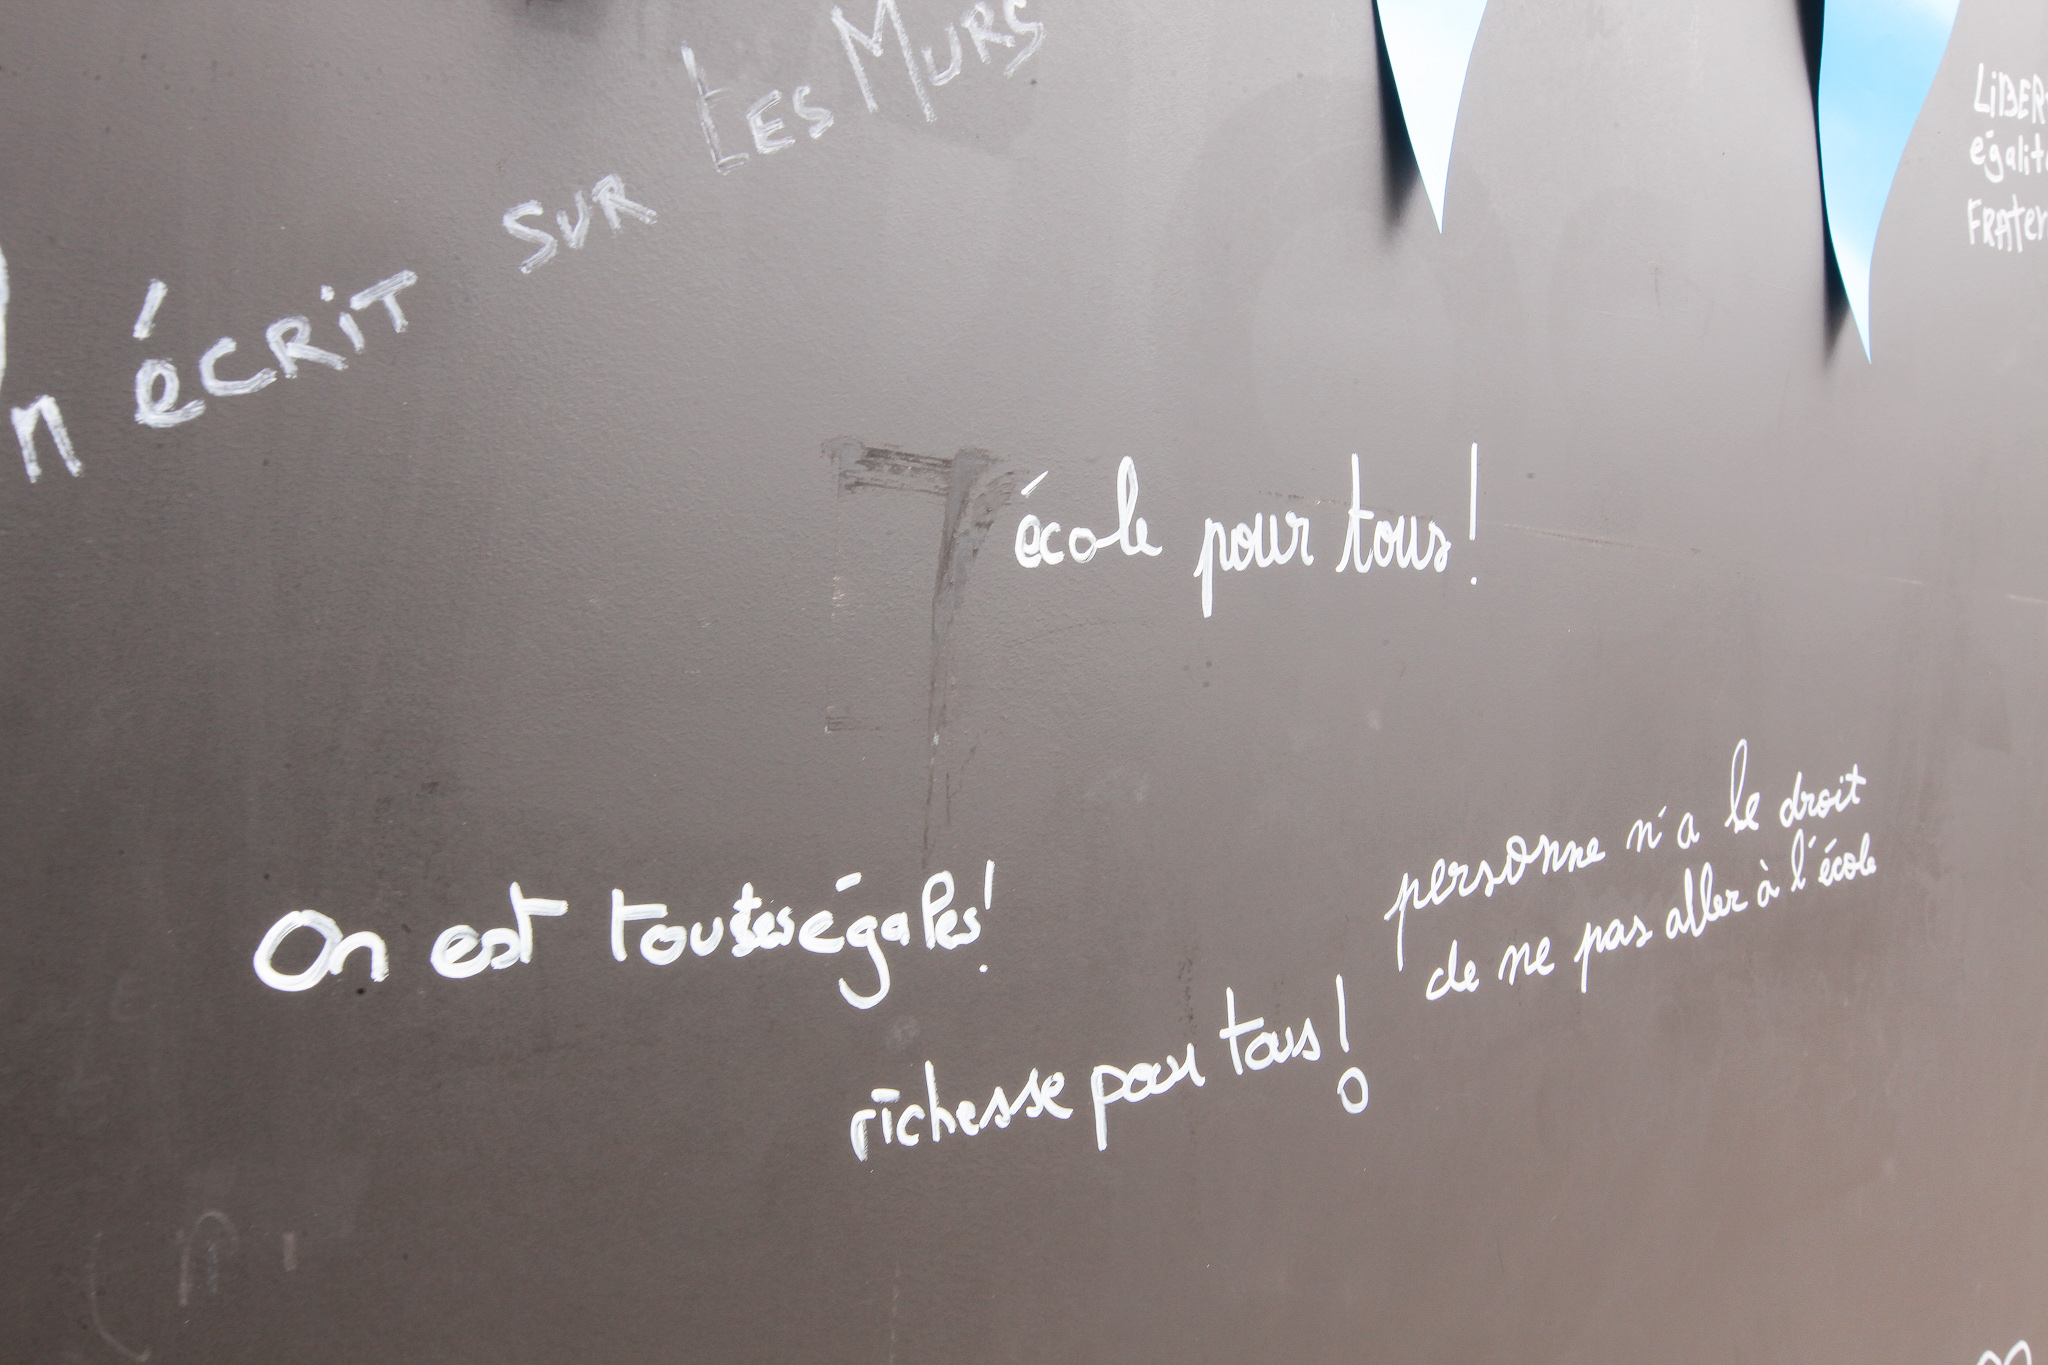 n écrit sur Les Murs
LiBER
égalité
FRAter
école pour tous !
On est toutes égales !
personne n'a le droit
de ne pas aller à l'école
richesse pour tous !